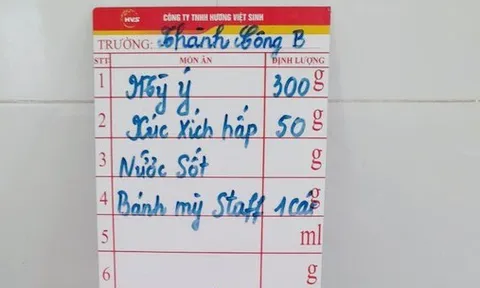 HVS CÔNG TY TNHH HƯƠNG VIỆT SINH
TRƯỜNG: Thành Công B
STT MÓN ĂN ĐỊNH LƯỢNG
1 Mỳ ý 300 g
2 Xúc Xích hấp 50 g
3 Nước Sốt g
4 Bánh mỳ Staff 1 cái g
5 ml
6 g